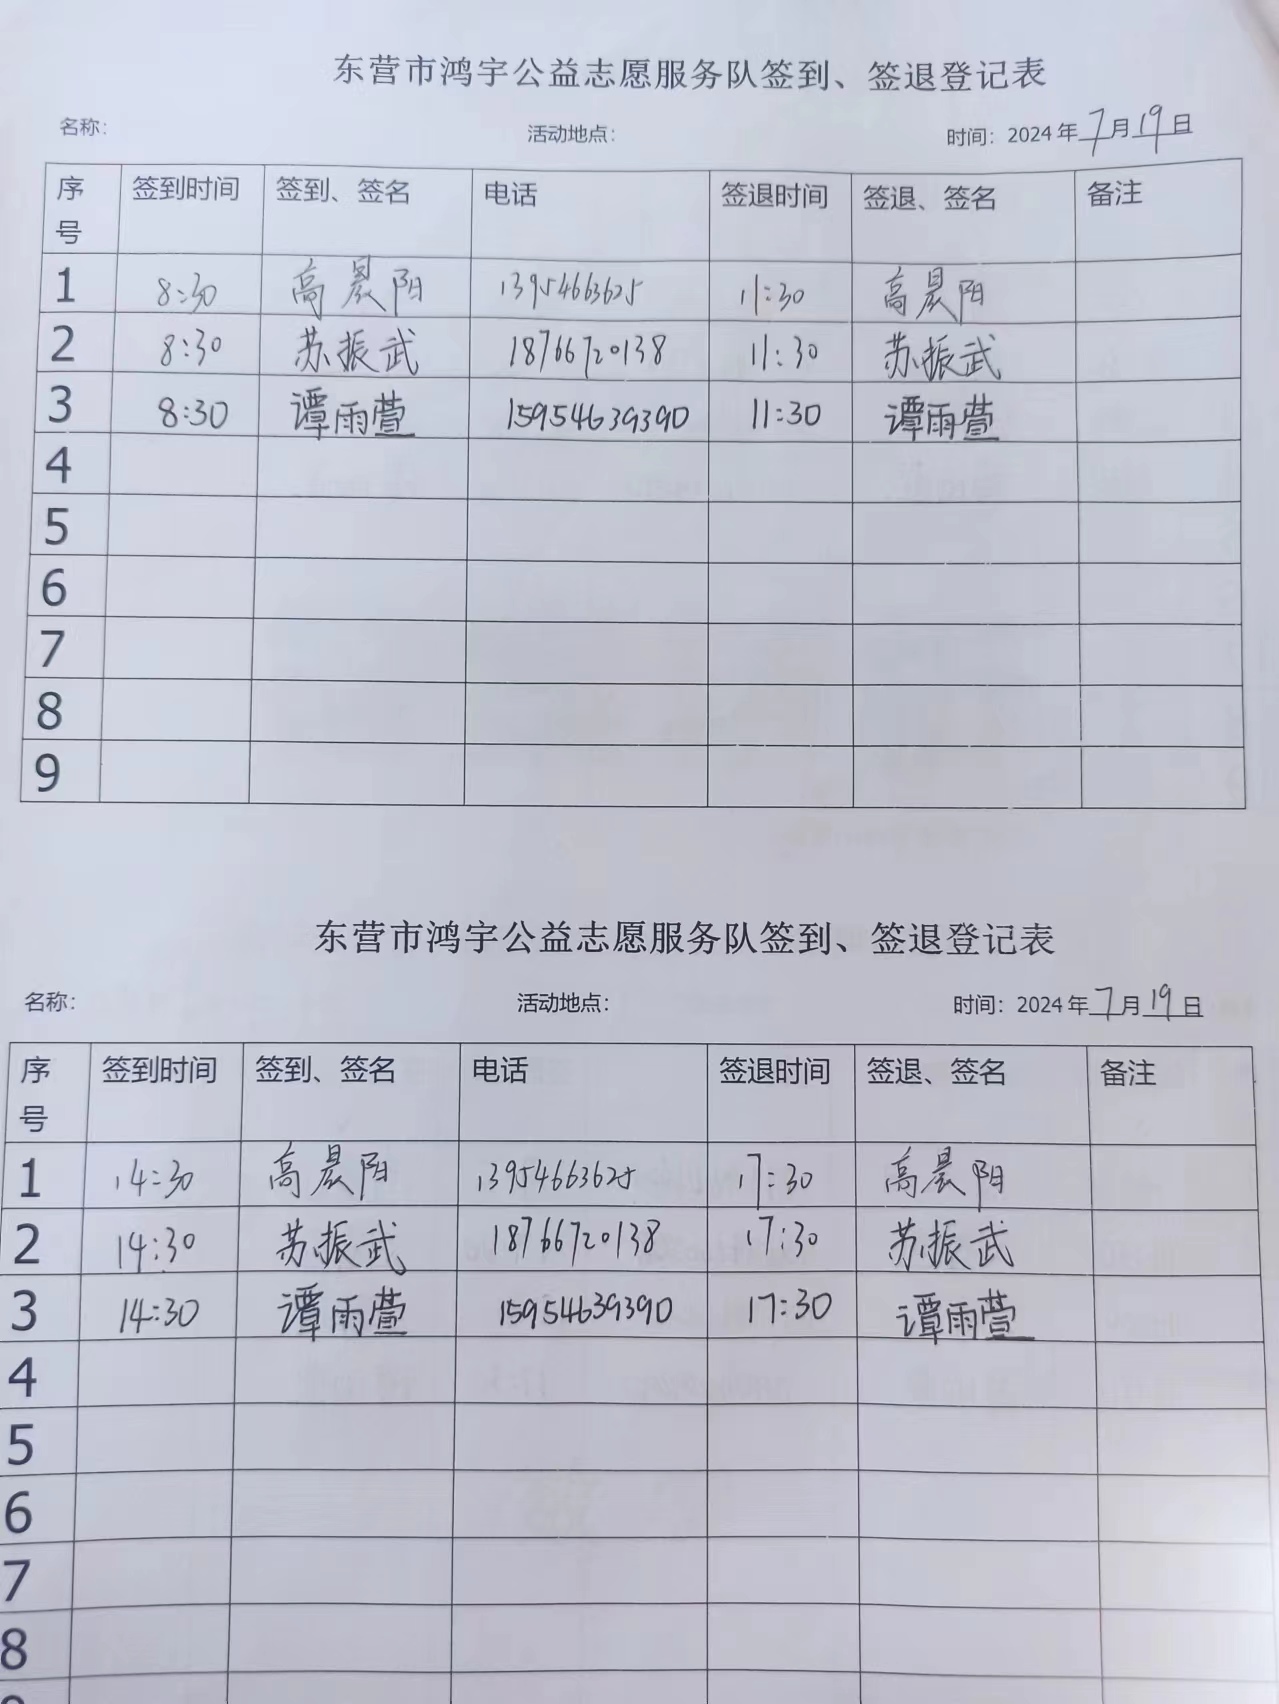 东营市鸿宇公益志愿服务队签到、签退登记表
名称： 活动地点： 时间：2024年7月19日
序号 签到时间 签到、签名 电话 签退时间 签退、签名 备注
1 8:30 高晨阳 13954663625 11:30 高晨阳
2 8:30 苏振武 18766720138 11:30 苏振武
3 8:30 谭雨萱 15954639390 11:30 谭雨萱
4
5
6
7
8
9
东营市鸿宇公益志愿服务队签到、签退登记表
名称： 活动地点： 时间：2024年7月19日
序号 签到时间 签到、签名 电话 签退时间 签退、签名 备注
1 14:30 高晨阳 13954663625 17:30 高晨阳
2 14:30 苏振武 18766720138 17:30 苏振武
3 14:30 谭雨萱 15954639390 17:30 谭雨萱
4
5
6
7
8